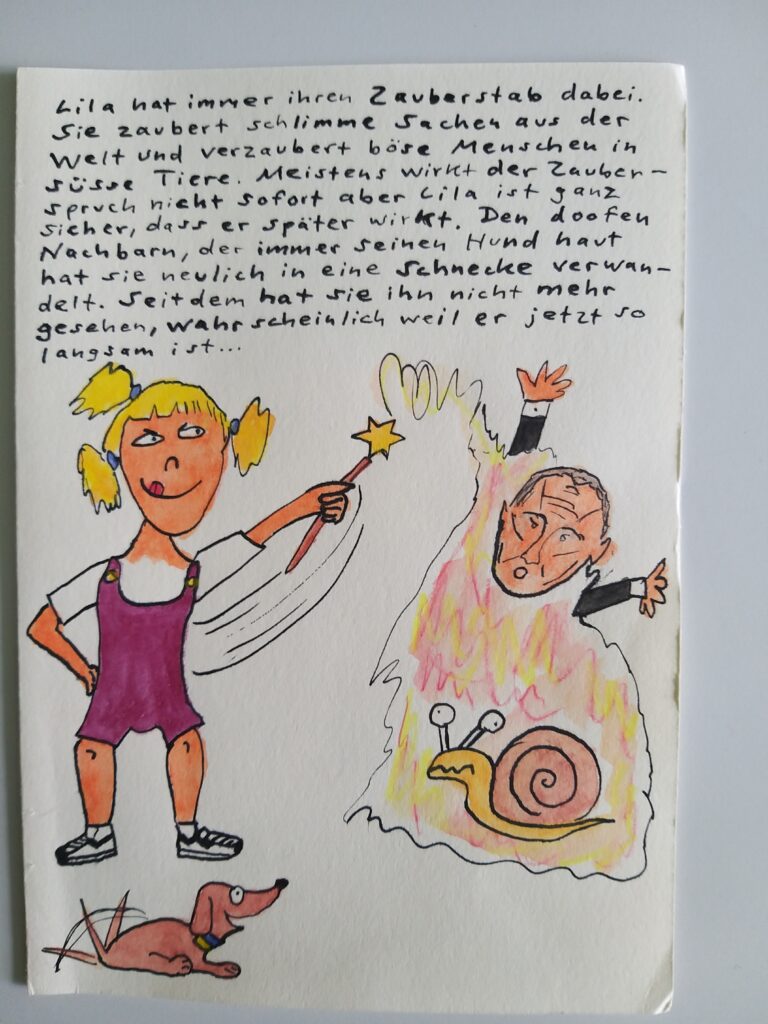 Lila hat immer ihren Zauberstab dabei.
Sie zaubert schlimme Sachen aus der
Welt und verzaubert böse Menschen in
süsse Tiere. Meistens wirkt der Zauber-
spruch nicht sofort aber Lila ist ganz
sicher, dass er später wirkt. Den doofen
Nachbarn, der immer seinen Hund haut
hat sie neulich in eine Schnecke verwan-
delt. Seitdem hat sie ihn nicht mehr
gesehen, wahrscheinlich weil er jetzt so
langsam ist...